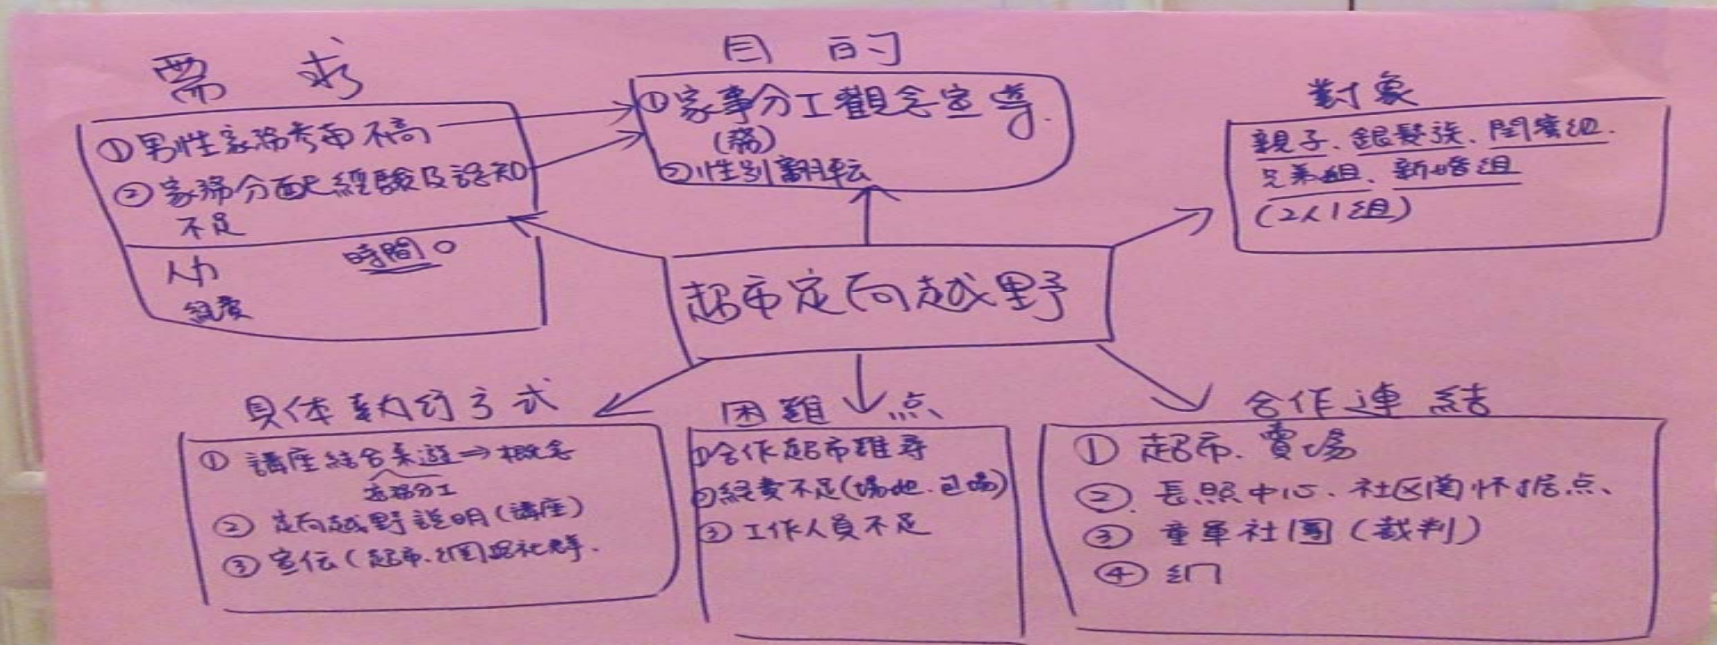 需求
①男性家務參與不高
②家務分配經驗及認知
不足
人力 時間
經費
目的
①家事分工觀念宣導.
(務)
②性別翻転
對象
親子、銀髮族、閨蜜組.
兄弟組、新婚組
(2人1組)
超市定向越野
具体執行方式
①講座結合桌遊⇒概念
家務分工
②定向越野說明(講座)
③宣伝(超市.社群.
困難点
①合作超市難尋
②経費不足(場地.包場)
③工作人員不足
合作連結
①超市.賣場
②.長照中心.社区関怀据点、
③童軍社團(裁判)
④